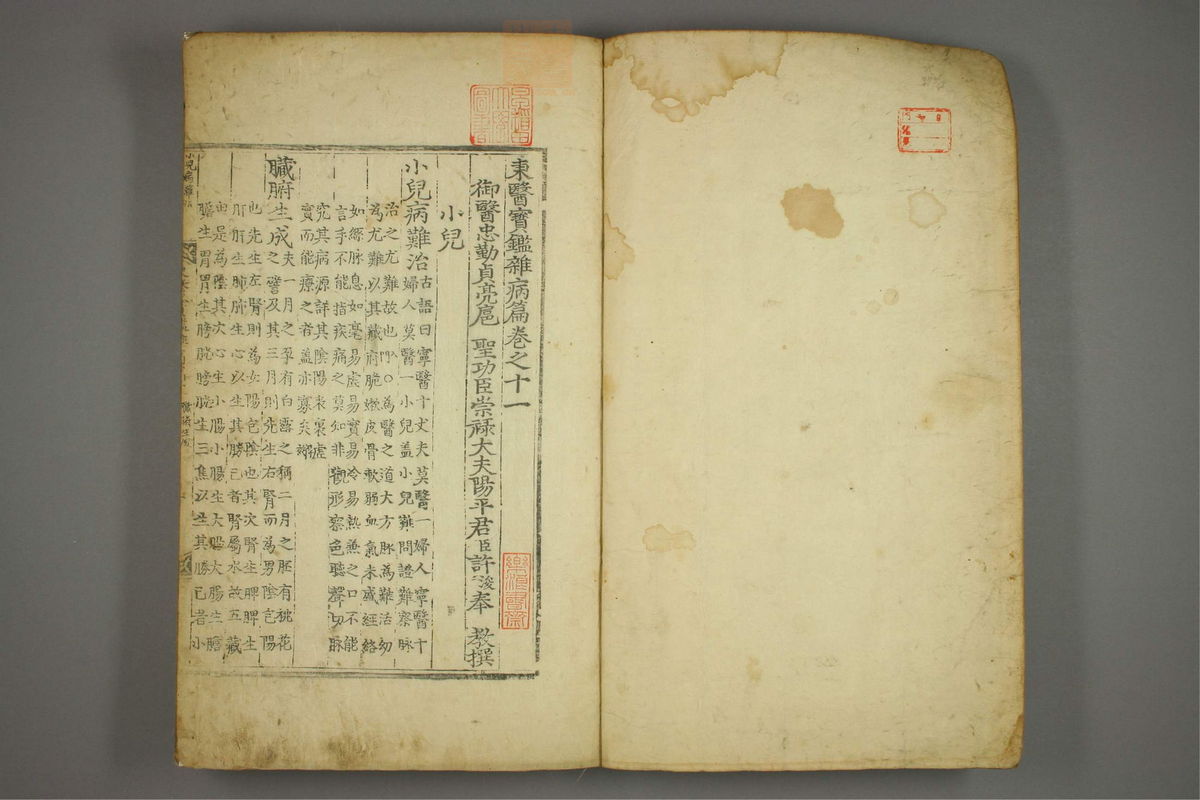 東醫寶鑑雜病篇卷之十一
御醫忠勤貞亮扈 聖功臣崇祿大夫陽平君臣許浚奉 教撰
小兒
小兒病難治
古語曰寧醫十丈夫莫醫一婦人寧醫十
婦人莫醫一小兒盖小兒難問證難察脉
治之尤難故也 ○為醫之道大方脉為難活幼
為尤難以其藏府脆嫩皮骨軟弱血氣未盛經絡
如絲脉息如毫易虛易實易冷易熱兼之口不能
言手不能指疾痛之莫知非觀形察色聽聲切脉
究其病源詳其陰陽表裏虛
實而能療之者盖亦寡矣
臟腑生成
夫一月之孕有白露之稱二月之胚有桃花
之譬及其三月則先生右腎而為男陰包陽
也先生左腎則為女陽包陰也其次腎生脾脾生
肝肝生肺肺生心以生其勝己者腎屬水故五藏
由是為陰其次心生小腸小腸生大腸大腸生膽
膽生胃胃生膀胱膀胱生三焦以生其勝己者小
小兒病難治